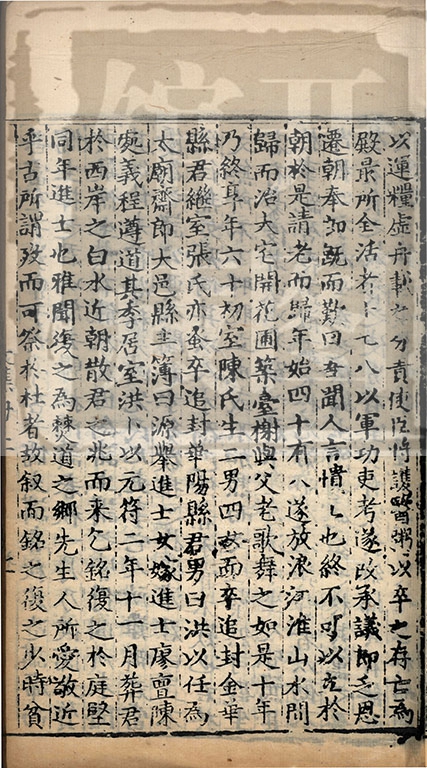 以運糧虛舟載之分責使臣將護醫粥以卒之存亡為
殿最所全活者十七八以軍功吏考遂改承議郎乞恩
遷朝奉郎既而歎曰吾聞人言憒憒也終不可以立於
朝於是請老而歸年始四十有八遂放浪河淮山水間
歸而治大宅開花圃築臺榭與父老歌舞之如是十年
乃終享年六十初室陳氏生二男四女而卒追封金華
縣君繼室張氏亦蚤卒追封華陽縣君男曰洪以任為
太廟齋郎大邑縣主簿曰源舉進士女嫁進士廖亶陳
宛義程遵道其季居室洪卜以元符二年十一月葬君
於西岸之白水近朝散君之兆而來乞銘復之於庭堅
同年進士也雅聞復之為僰道之鄉先生人所愛敬近
乎古所謂歿而可祭於社者故叙而銘之復之少時貧